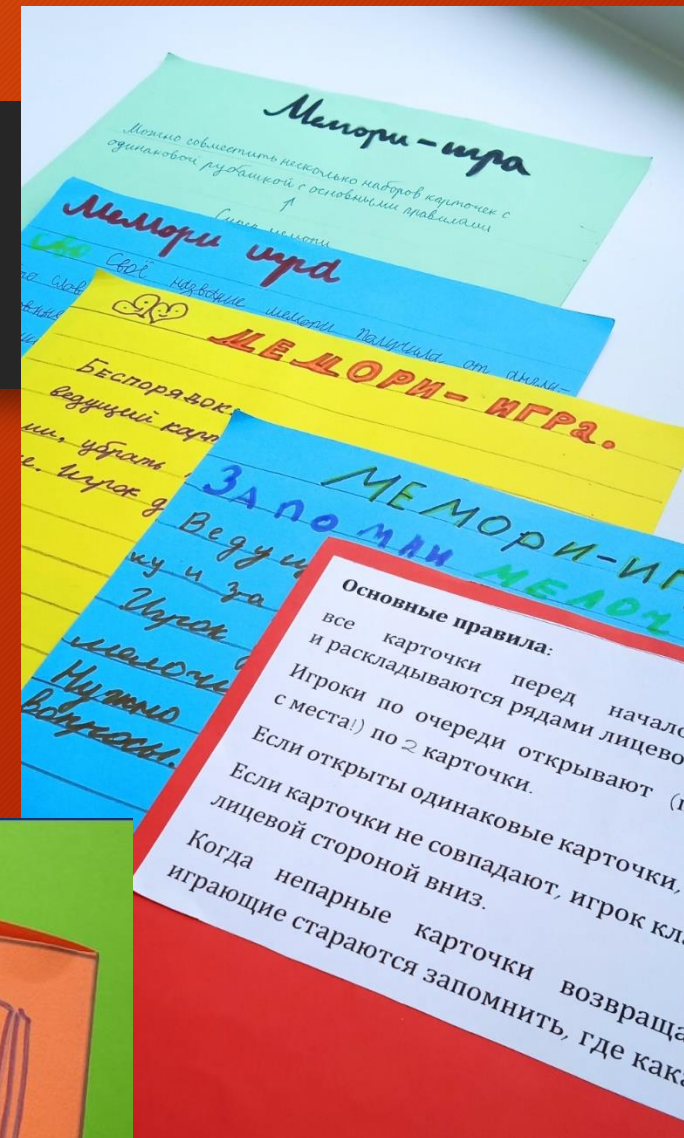 Мемори-игра
Можно совместить несколько наборов карточек с
одинаковой рубашкой с основными правилами
Супер мемори
Мемори игра
Своё название мемори получила от англи-
МЕМОРИ-ИГРа.
БЕСПОРЯДОК.
ведущий карт
ми, убрать
е. Игрок д
МЕМОРИ-ИГ
ЗАПОМНИ МЕЛОЧ
Ведущ
ку и за
Игрок
мелочи
Нужно
вопросы.
Основные правила:
все карточки перед начало
и раскладываются рядами лицево
Игроки по очереди открывают (
с места!) по 2 карточки.
Если открыты одинаковые карточки,
Если карточки не совпадают, игрок кла
лицевой стороной вниз.
Когда непарные карточки возвраща
играющие стараются запомнить, где кака